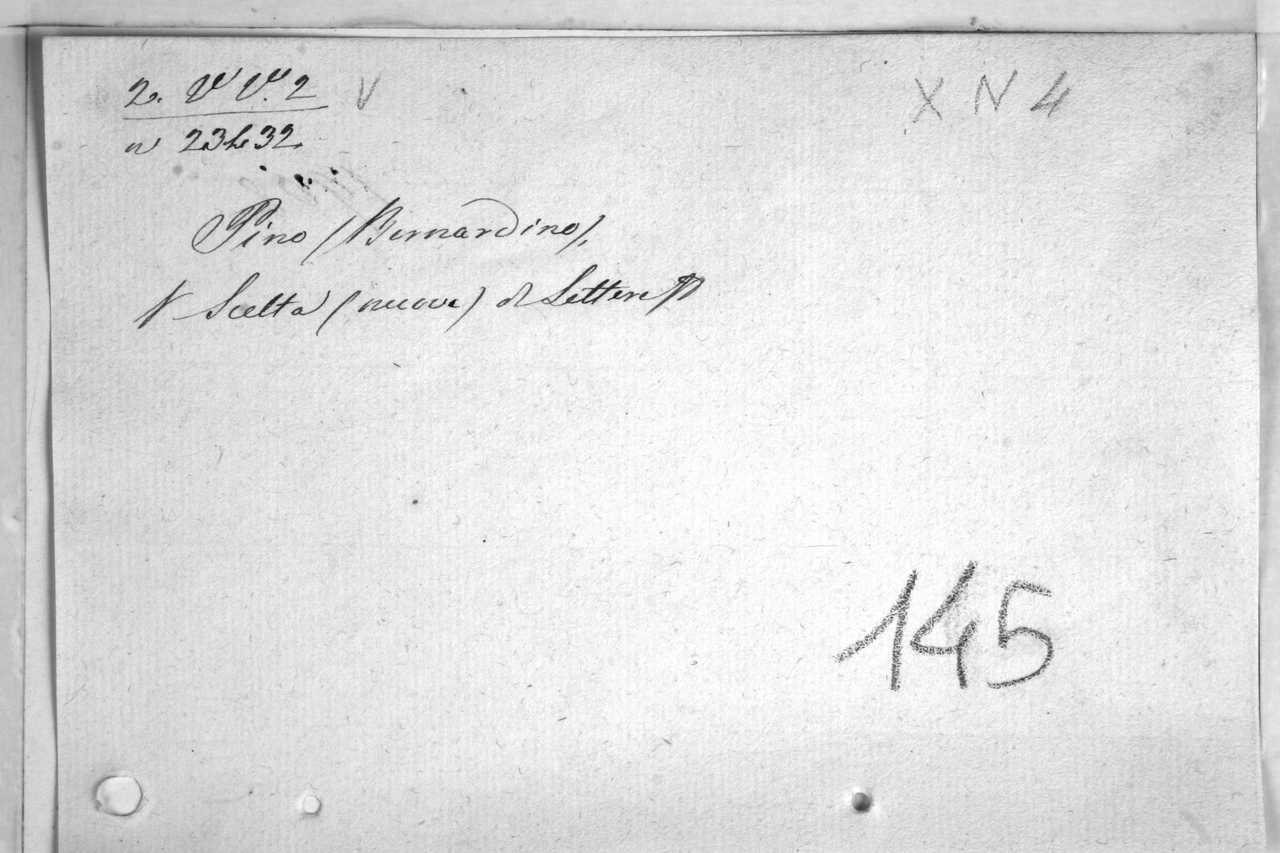 2. V V. 2 V X N 4
n 23432.
Pino (Bernardino),
Scelta (nuova) di Lettere
145